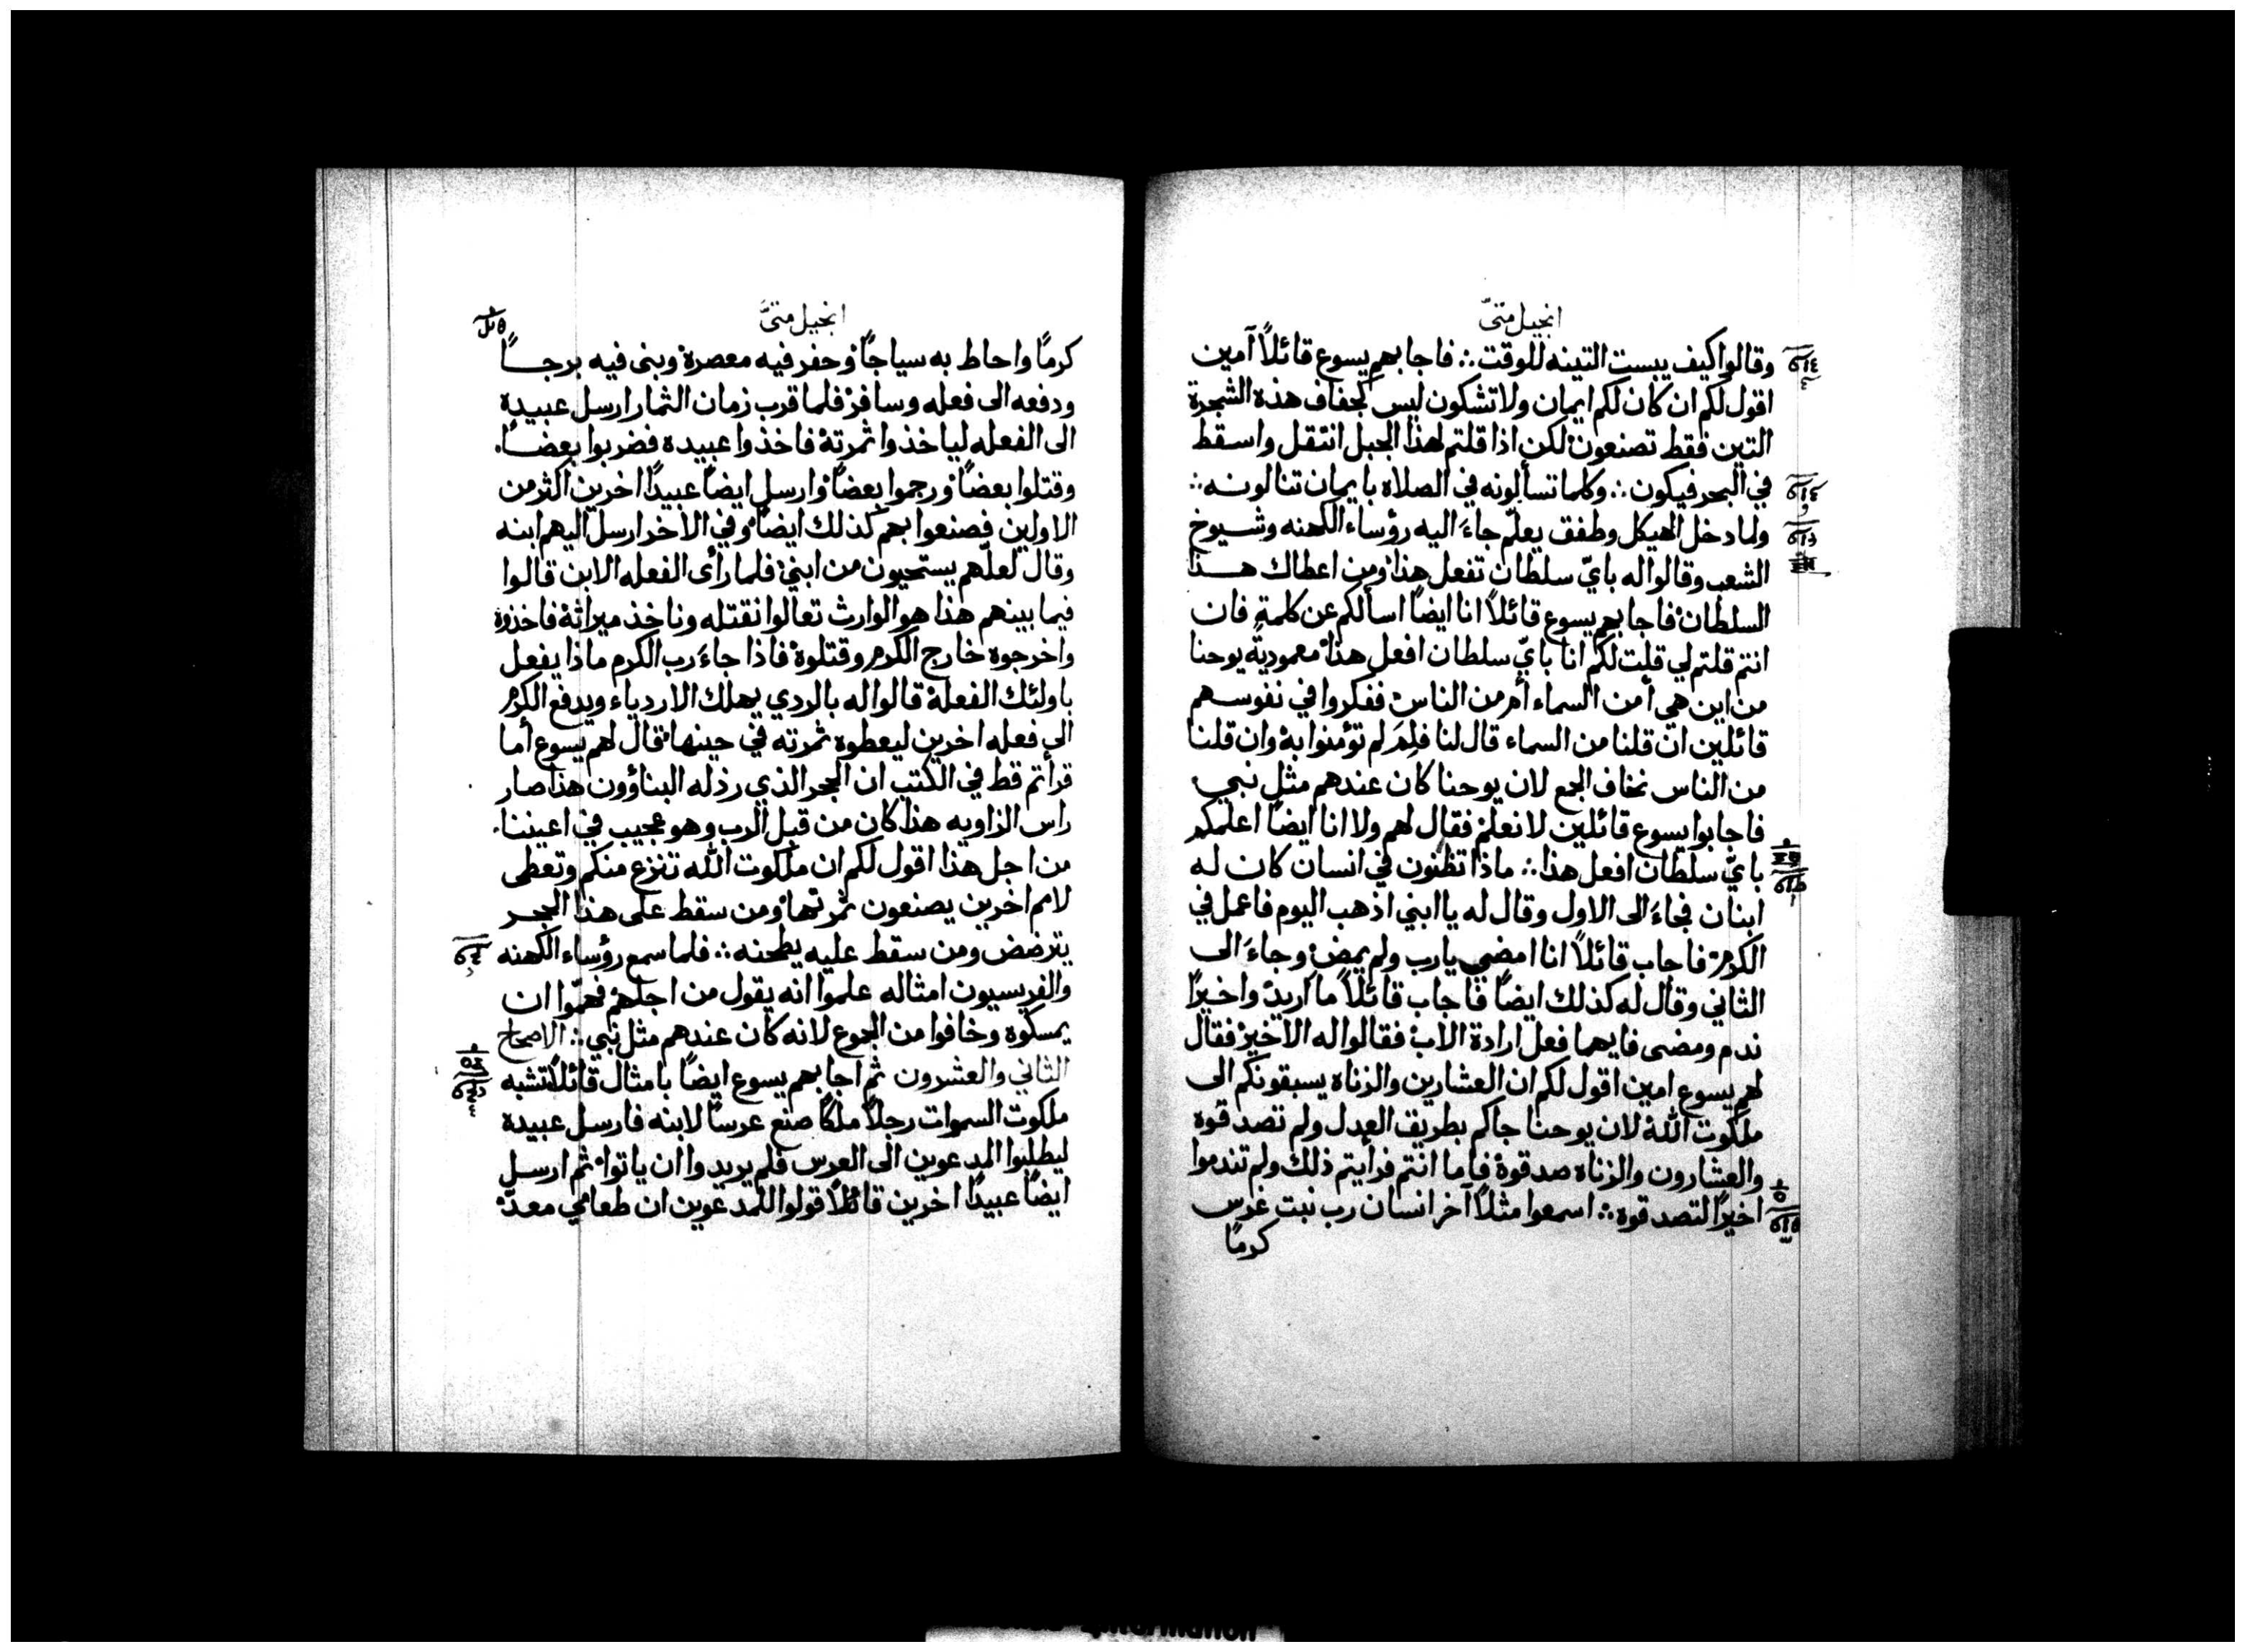 انجيل متىّ
وقالوا كيف يبست التينه للوقت ∴ فاجابهم يسوع قائلاً آمين
اقول لكم ان كان لكم ايمان ولا تشكون ليس كجفاف هذه الشجرة
التين فقط تصنعون لكن اذا قلتم لهذا الجبل انتقل واسقط
في البحر فيكون ∴ وكلما تسألونه في الصلاه بايمان تنالونه ∴
ولما دخل الهيكل وطفق يعلّم جاءَ اليه رؤساء الكهنه وشيوخ
الشعب وقالوا له بايّ سلطان تفعل هذا ومن اعطاك هذا
السلطان فاجابهم يسوع قائلاً انا ايضاً اسألكم عن كلمةٍ فان
انتم قلتم لي قلت لكم انا بايّ سلطان افعل هذا معمودية يوحنا
من اين هي أمن السماء أم من الناس ففكروا في نفوسهم
قائلين ان قلنا من السماء قال لنا فلِمَ لم تؤمنوا به وان قلنا
من الناس نخاف الجمع لان يوحنا كان عندهم مثل نبي
فاجابوا يسوع قائلين لا نعلم فقال لهم ولا انا ايضاً اعلمكم
بايّ سلطان افعل هذا ∴ ماذا تظنون في انسان كان له
ابنان فجاءَ الى الاول وقال له يا ابني اذهب اليوم فاعمل في
الكرم فاجاب قائلاً انا امضي يا رب ولم يمض وجاءَ الى
الثاني وقال له كذلك ايضاً فاجاب قائلاً ما اريد واخيراً
ندم ومضى فايهما فعل ارادة الاب فقالوا له الاخير فقال
لهم يسوع امين اقول لكم ان العشارين والزناه يسبقونكم الى
ملكوت الله لان يوحنا جاكم بطريق العدل ولم تصدقوه
والعشارون والزناه صدقوه فاما انتم فرأيتم ذلك ولم تندموا
اخيراً لتصدقوه ∴ اسمعوا مثلاً آخر انسان رب بيت غرس
كرماً
انجيل متىّ
كرماً واحاط به سياجاً وحفر فيه معصرة وبنى فيه برجاً
ودفعه الى فعله وسافر فلما قرب زمان الثمار ارسل عبيده
الى الفعله لياخذوا ثمرته فاخذوا عبيده فضربوا بعضاً.
وقتلوا بعضاً ورجموا بعضاً وارسل ايضاً عبيداً اخرين اكثر من
الاولين فصنعوا بهم كذلك ايضاً وفي الاخر ارسل اليهم ابنه
وقال لعلّهم يستحيون من ابني فلما رأى الفعله الابن قالوا
فيما بينهم هذا هو الوارث تعالوا نقتله وناخذ ميراثه فاخذوه
واخرجوه خارج الكرم وقتلوه فاذا جاءَ رب الكرم ماذا يفعل
باولئك الفعلة قالوا له بالردي يهلك الاردياء ويدفع الكرم
الى فعله اخرين ليعطوه ثمرته في حينها قال لهم يسوع أما
قرأتم قط في الكتب ان الحجر الذي رذله البناؤون هذا صار
راس الزاويه هذا كان من قبل الرب وهو عجيب في اعيننا.
من اجل هذا اقول لكم ان ملكوت الله تنزع منكم وتعطى
لامم اخرين يصنعون ثمرتها ومن سقط على هذا الحجر
يترضض ومن سقط عليه يطحنه ∴ فلما سمع رؤساء الكهنه
والفريسيون امثاله علموا انه يقول من اجلهم فهمّوا ان
يمسكوه وخافوا من الجموع لانه كان عندهم مثل نبي ∴ الاصحاح
الثاني والعشرون ثم اجابهم يسوع ايضاً بامثال قائلاً تشبه
ملكوت السموات رجلاً ملكاً صنع عرساً لابنه فارسل عبيده
ليطلبوا المدعوين الى العرس فلم يريدوا ان ياتوا ثم ارسل
ايضاً عبيداً اخرين قائلاً قولوا للمدعوين ان طعامي معدّ